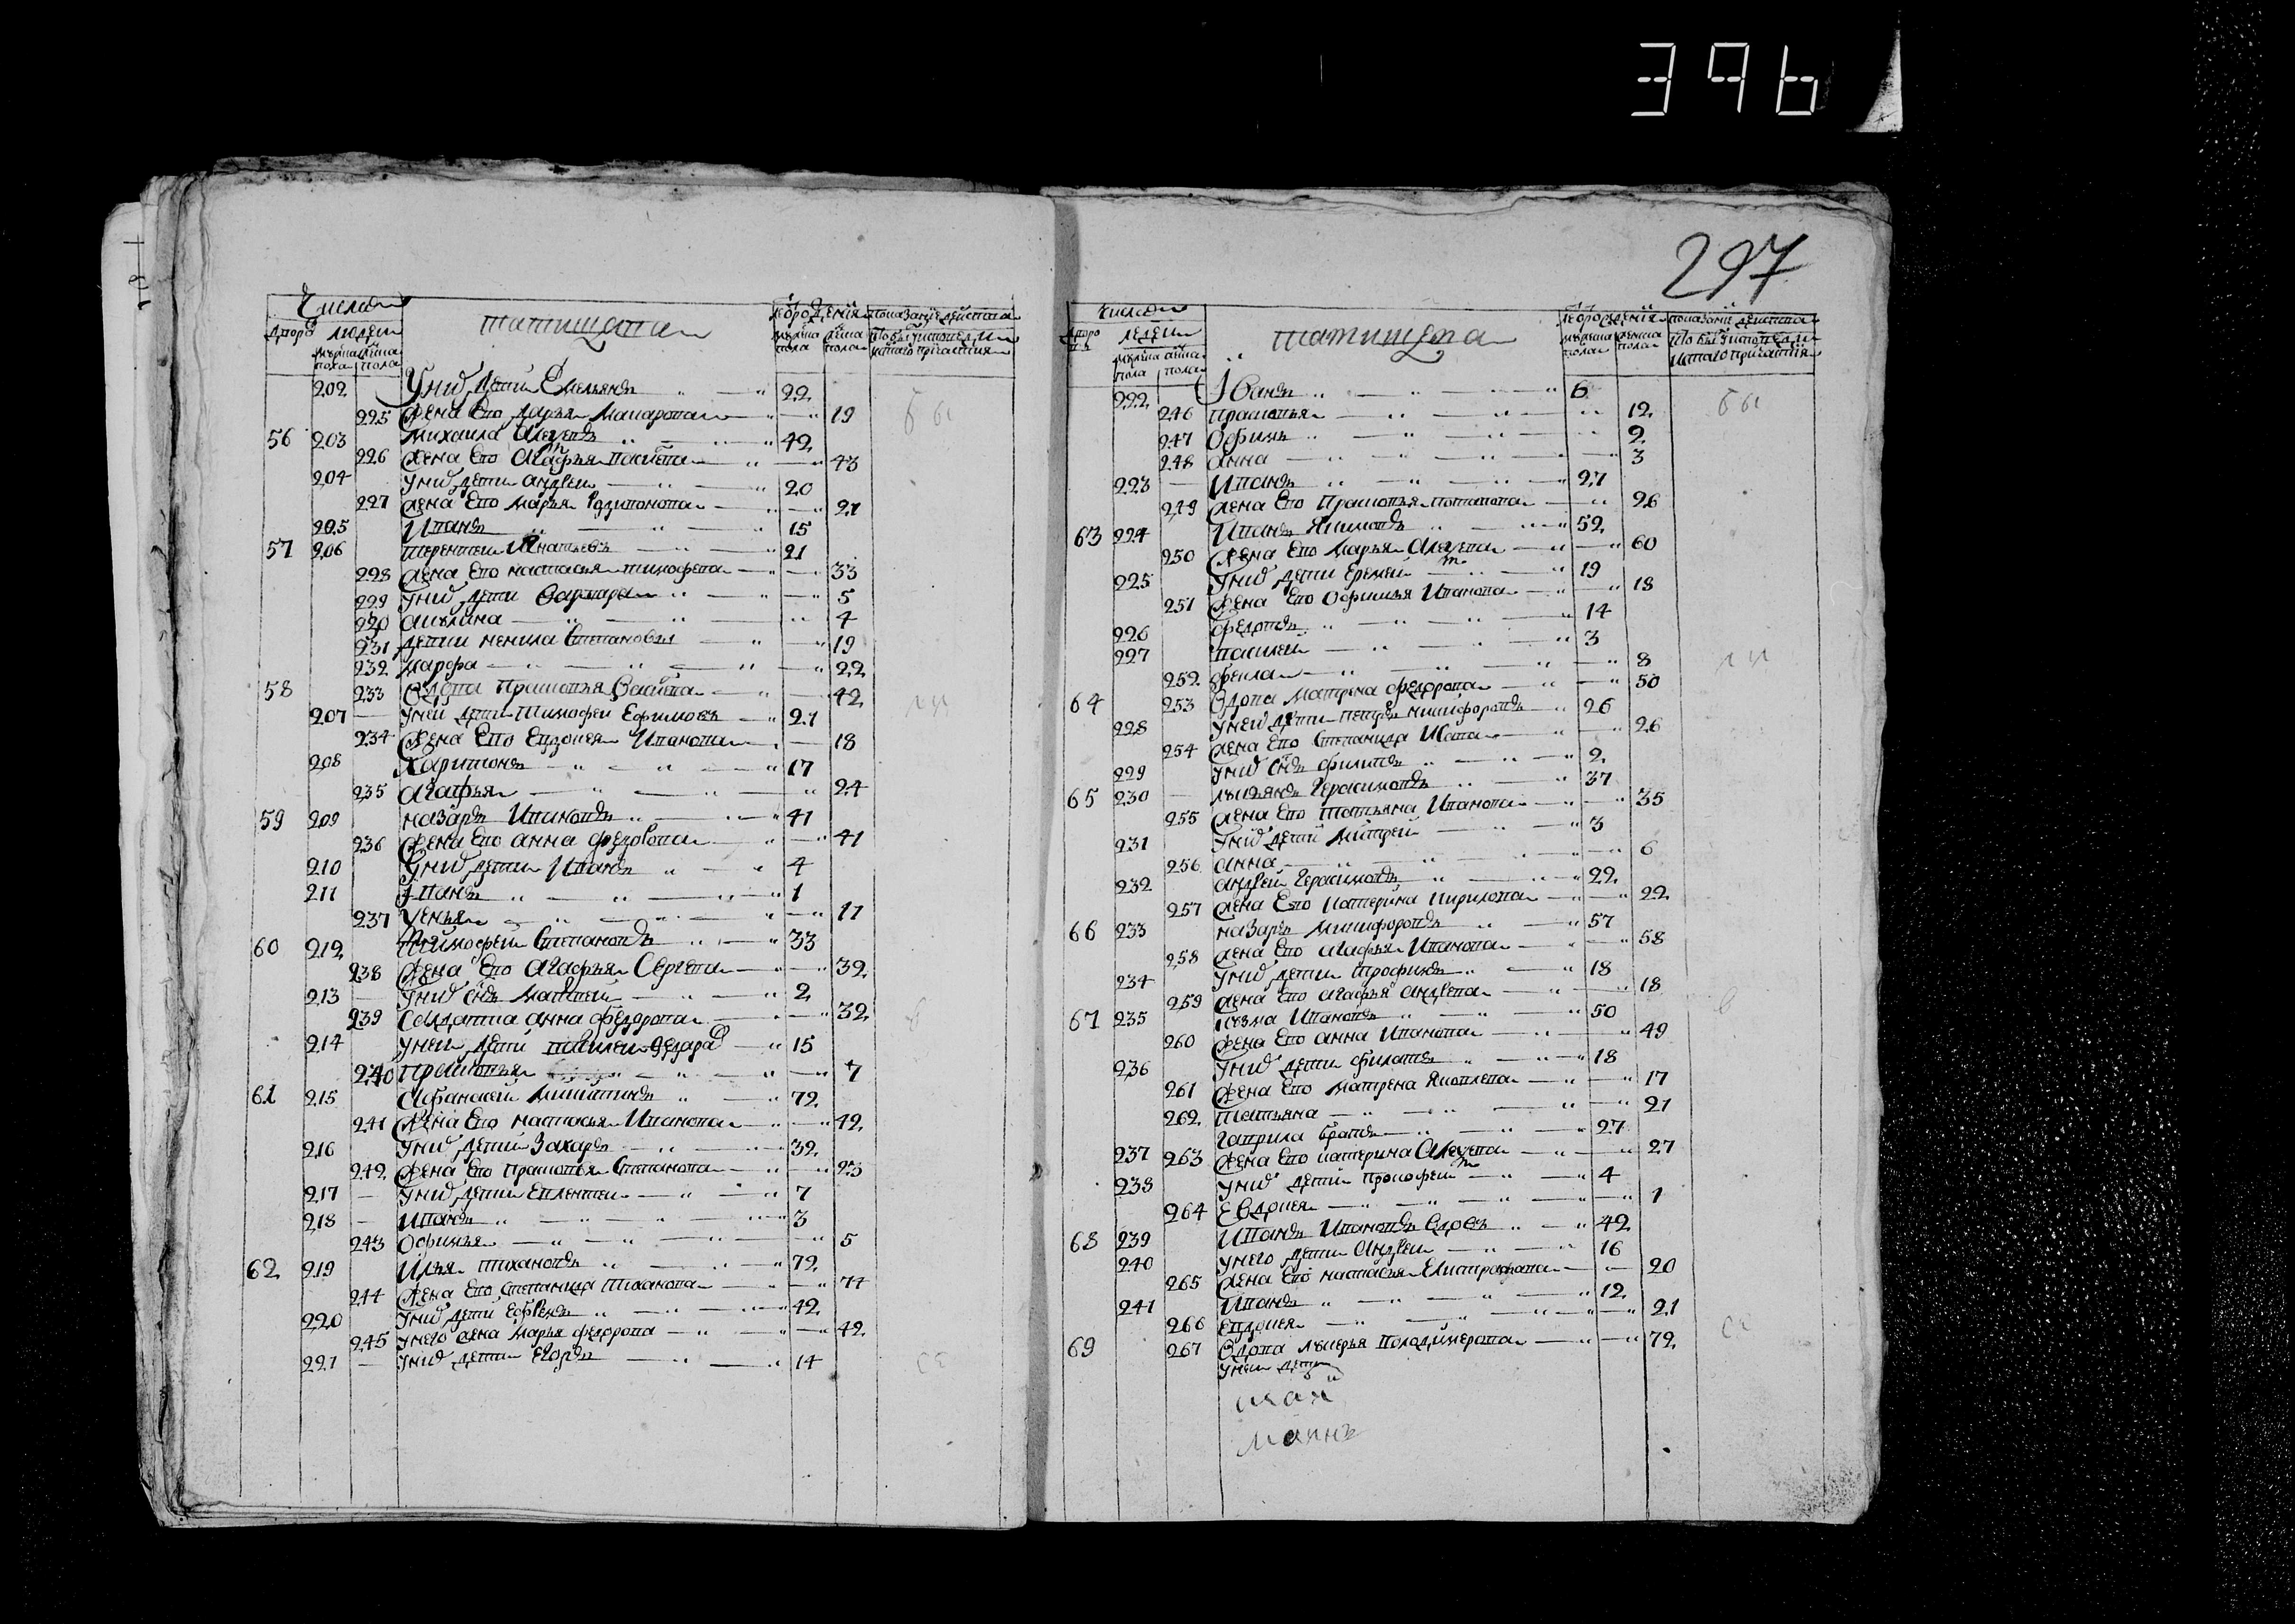 396
297
Число
Дворов людей
мужеска пола женска пола
татищева
лета от рождения
мужеска пола женска пола
показание действа
кто был у исповеди и святаго причастия
202 У них дети Емельянъ 22
225 Жена Ево дарья Макарова 19
были
56 203 Михаила Алеуевъ 42
226 Жена Ево Агафья васильева 43
204 у них дети андреи 20
227 жена Ево марья Родивонова 21
205 Иванъ 15
57 206 терентеи Игнатьевъ 21
228 жена Ево настасья тимофева 33
229 у них дети Варвара 5
230 акилина 4
231 дети ненила Степановы 19
232 марфа 22
58 233 Вдова прасковья Васильева 42
207 у неи дети Тимофеи Ефимовъ 21
234 Жена Ево Евдокея Иванова 18
208 Харитонъ 17
235 Агафья 24
59 209 назаръ Ивановъ 41
236 Жена Ево анна федорова 41
210 У них дети Иванъ 4
211 Iванъ 1
237 Уенья 11
60 212 Тимофеи Степановъ 33
238 Жена Ево Агафья Сергева 32
213 У них снъ Матвеи 2
239 Солдатка анна федорова 32
214 у неи дети василеи федоров 15
240 прасковья 7
61 215 Афанасеи Микитинъ 72
241 Жена Ево настасья Иванова 42
216 У них дети Захаръ 32
242 Жена Ево прасковья Степанова 23
217 У них дети Евлентеи 7
218 Иванъ 3
243 Офимья 5
62 219 Илья тихановъ 72
244 Жена Ево Степанида Тиханова 71
220 У них дети Ефремъ 42
245 у него жена Марья федорова 42
221 У них дети Егоръ 14
Число
Дворовъ людеи
мужеска пола женска пола
татищева
лета от рождения
мужеска пола женска пола
показание действа
кто был у исповеди и святаго причастия
222 Iванъ 6
246 прасковья 12
были
247 Офимь 9
248 анна 3
223 Иванъ 27
249 жена Ево Прасковья потапова 26
63 224 Иванъ Якимовъ 52
250 Жена Ево Марья Алеуева 60
225 У них дети еремеи 19
251 Жена Ево Офимья Иванова 18
226 федотъ 14
227 василеи 3
252 фекла 8
64 253 Вдова матрена федорова 50
228 У неи дети петръ никифоровъ 26
254 жена Ево Степанида Исаева 26
229 у них снъ филипъ 2
65 230 лукьянъ Герасимовъ 37
255 жена Ево татьяна Иванова 35
231 У них дети митреи 3
256 анна 6
232 андреи Герасимовъ 22
257 жена Ево катерина кирилова 22
66 233 назаръ микифоровъ 57
258 жена Ево агафья Иванова 58
234 У них дети трофимъ 18
259 жена Ево агафья андрева 18
67 235 козма Ивановъ 50
260 Жена Ево анна Иванова 49
236 У них дети филатъ 18
261 Жена Ево матрена Яковлева 17
262 татьяна 21
гаврила братъ 27
237 263 Жена Ево катерина Алеуева 27
238 У них дети прокофеи 4
264 Евдокея 1
68 239 Иванъ Ивановъ Вдовъ 42
240 у него дети Андреи 16
265 жена Ево настасья Елистратова 20
241 Иванъ 12
266 Евдокея 21
69 267 Вдова лукерья володимерова 72
у неи дети